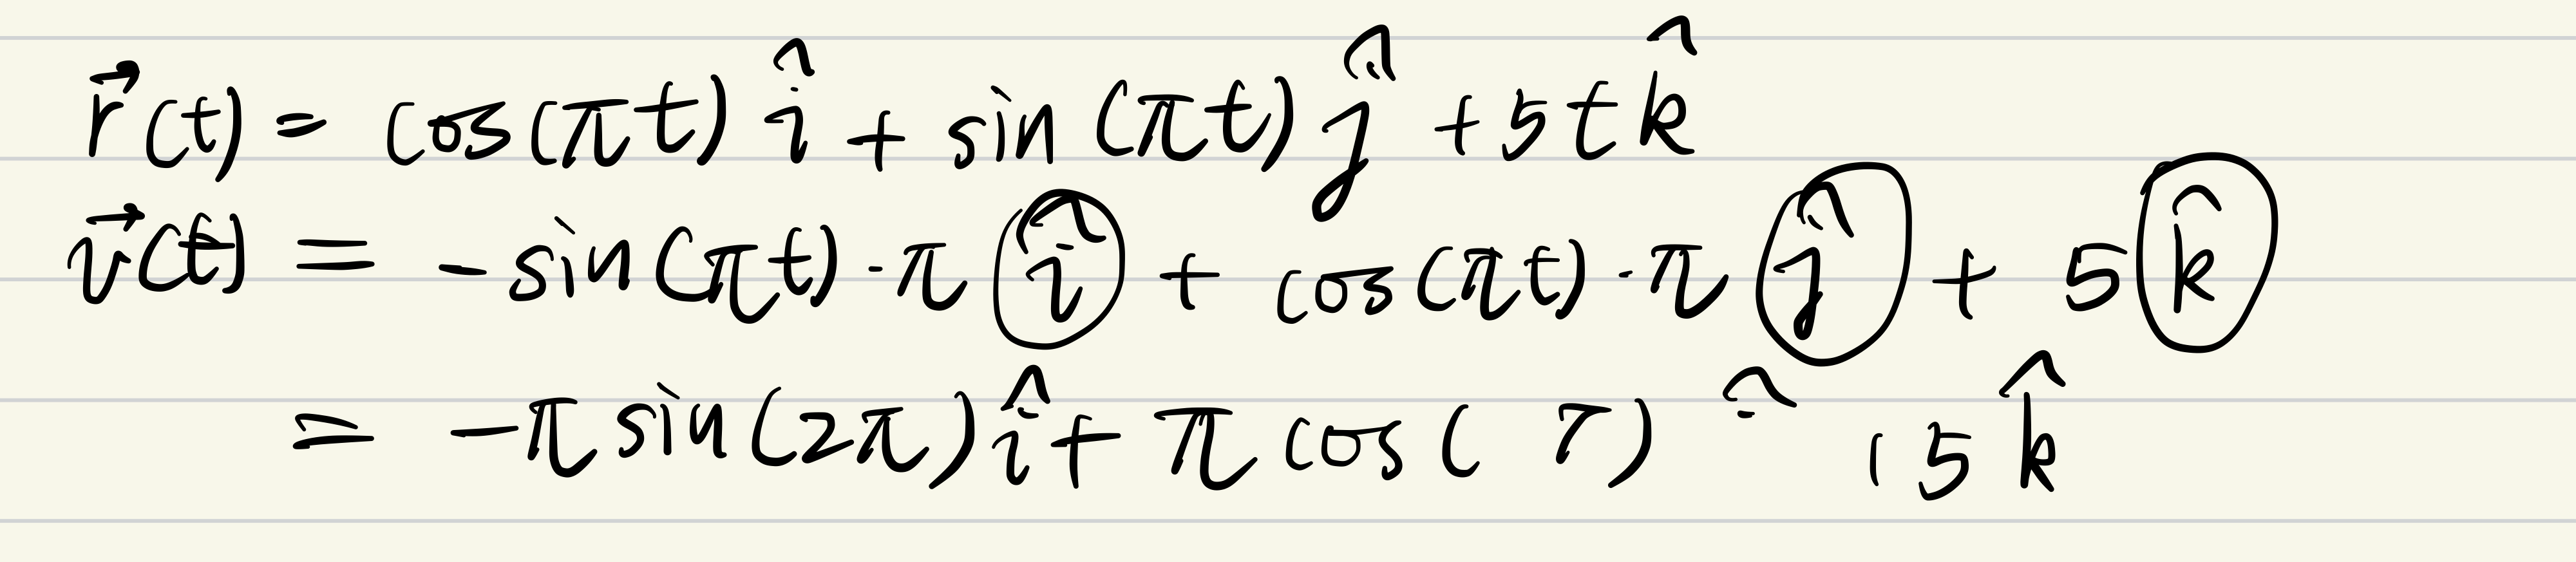 r⃗(t) = cos(πt) î + sin(πt) ĵ + 5t k̂
v⃗(t) = -sin(πt)·π î + cos(πt)·π ĵ + 5 k̂
= -π sin(2π) î + π cos( ) 5 k̂